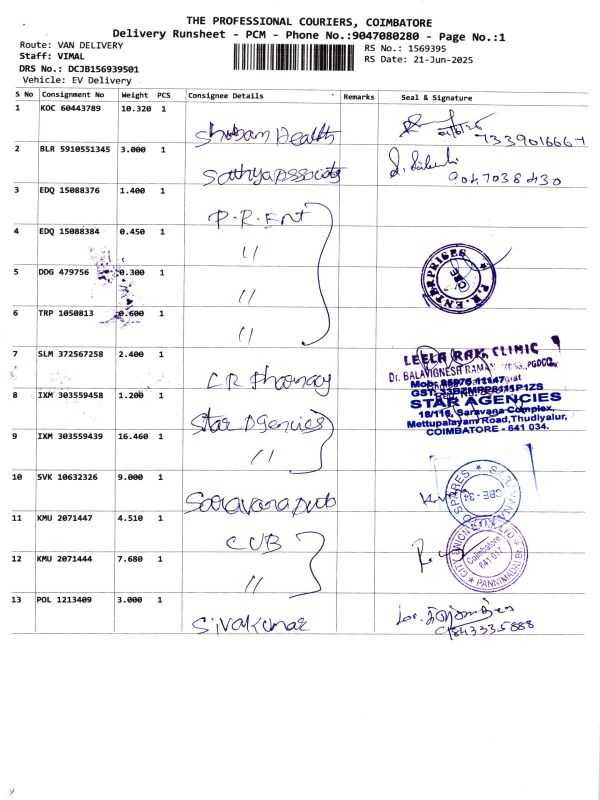 THE PROFESSIONAL COURIERS, COIMBATORE
Delivery Runsheet - PCM - Phone No.:9047080280 - Page No.:1
Route: VAN DELIVERY
RS No.: 1569395
Staff: VIMAL
RS Date: 21-Jun-2025
DRS No.: DCJB156939501
Vehicle: EV Delivery
S No Consignment No Weight PCS Consignee Details Remarks Seal & Signature
1 KOC 60443789 10.320 1 Shuban Health 7339016667
2 BLR 5910551345 3.000 1 Sathya Associates 9047038430
3 EDQ 15088376 1.400 1 P.R. Ent
4 EDQ 15088384 0.450 1 "
5 DDG 479756 0.300 1 "
P.R. ENTERPRISES
CBE
6 TRP 1050813 0.600 1 "
7 SLM 372567258 2.400 1 LR Pharmacy
LEELA RAM CLINIC
Dr. BALAVIGNESH RAMAN
8 IXM 303559458 1.200 1 Star Agencies
STAR AGENCIES
18/116, Saravana Complex,
Mettupalayam Road, Thudiyalur,
COIMBATORE - 641 034.
9 IXM 303559439 16.460 1 "
10 SVK 10632326 9.000 1 Saravana Auto
CBE - 34
11 KMU 2071447 4.510 1 CUB
CITY UNION BANK LTD
Coimbatore
641 017
PANNIMADAI Br.
12 KMU 2071444 7.680 1 "
13 POL 1213409 3.000 1 Sivakumar
9843335888